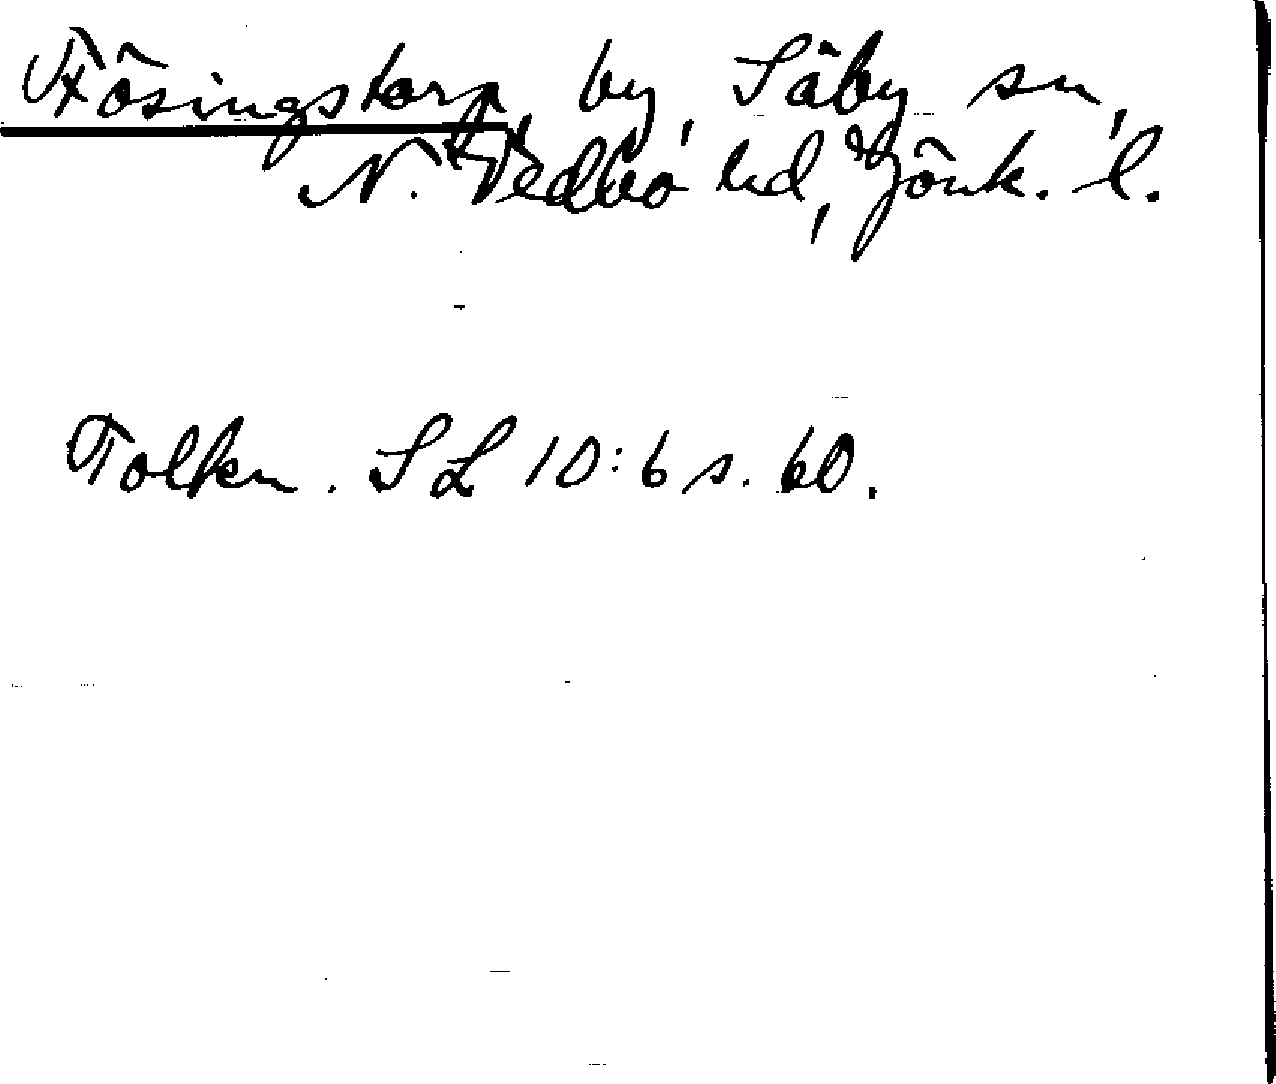 Fösingstorp, by, Säby sn,
N. Vedbo hd, Jönk. l.
Tolkn. SL 10:6 s. 60.